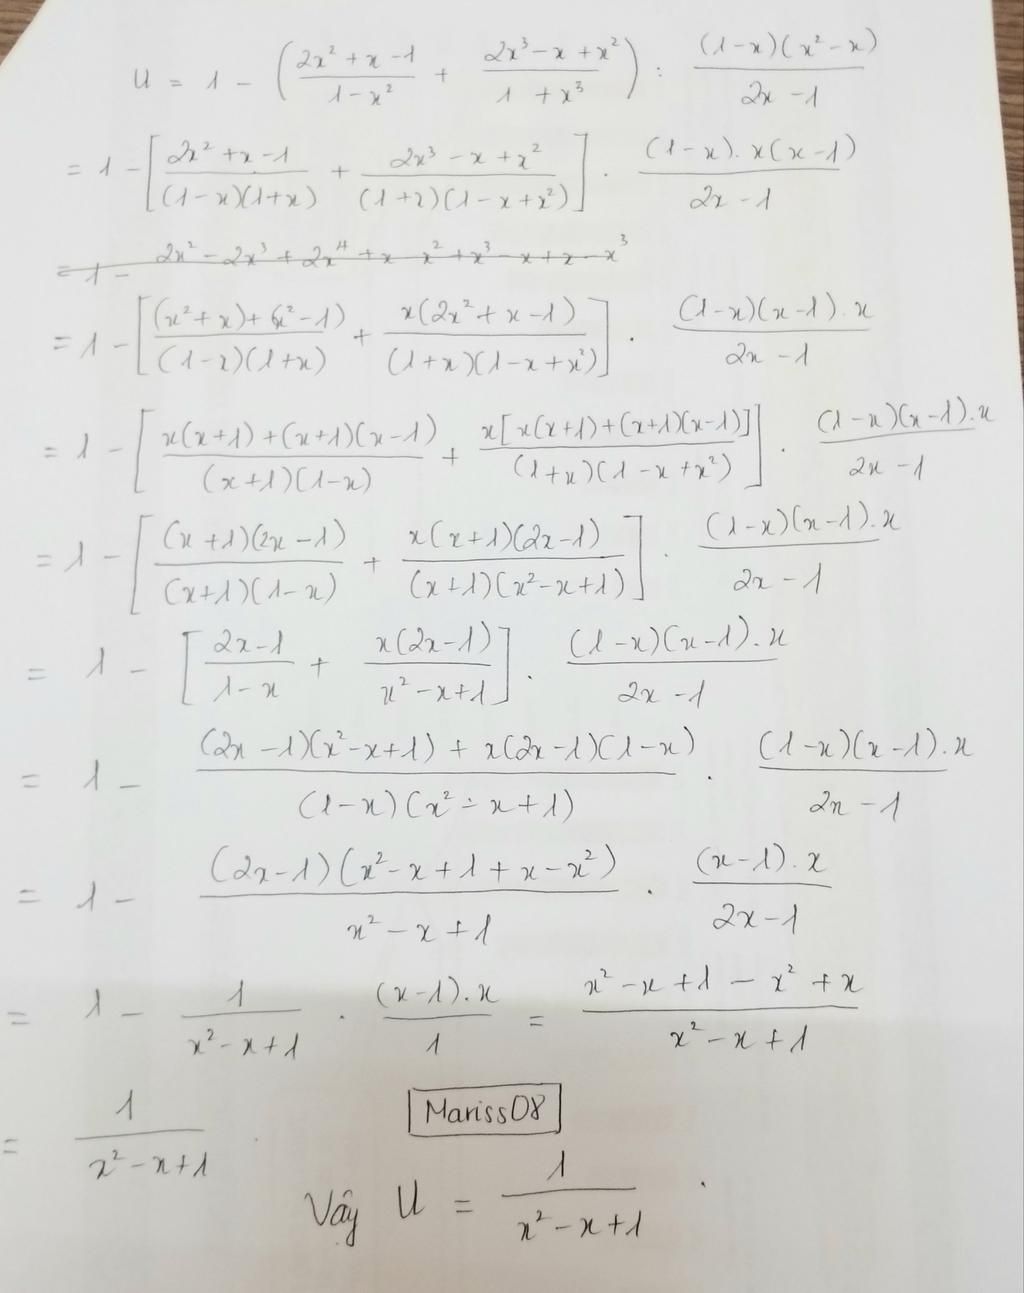 U = 1 - ( (2x² + x - 1)/(1 - x²) + (2x³ - x + x²)/(1 + x³) ) : (1-x)(x²-x)/(2x - 1)
= 1 - [ (2x² + x - 1)/((1-x)(1+x)) + (2x³ - x + x²)/((1+x)(1-x+x²)) ] . (1-x).x(x-1)/(2x - 1)
= 1 - 2x² - 2x³ + 2x⁴ + x - x² + x³ - x + x - x³
= 1 - [ ((x²+x)+(x²-1))/((1-x)(1+x)) + x(2x² + x - 1)/((1+x)(1-x+x²)) ] . (1-x)(x-1).x/(2x - 1)
= 1 - [ (x(x+1)+(x+1)(x-1))/((x+1)(1-x)) + x[x(x+1)+(x+1)(x-1)]/((1+x)(1-x+x²)) ] . (1-x)(x-1).x/(2x - 1)
= 1 - [ (x+1)(2x-1)/((x+1)(1-x)) + x(x+1)(2x-1)/((x+1)(x²-x+1)) ] . (1-x)(x-1).x/(2x - 1)
= 1 - [ (2x-1)/(1-x) + x(2x-1)/(x²-x+1) ] . (1-x)(x-1).x/(2x - 1)
= 1 - ((2x-1)(x²-x+1) + x(2x-1)(1-x))/((1-x)(x²-x+1)) . (1-x)(x-1).x/(2x - 1)
= 1 - (2x-1)(x²-x+1+x-x²)/(x²-x+1) . (x-1).x/(2x-1)
= 1 - 1/(x²-x+1) . (x-1).x/1 = (x²-x+1-x²+x)/(x²-x+1)
= 1/(x²-x+1) .
Mariss08
Vậy U = 1/(x²-x+1) .